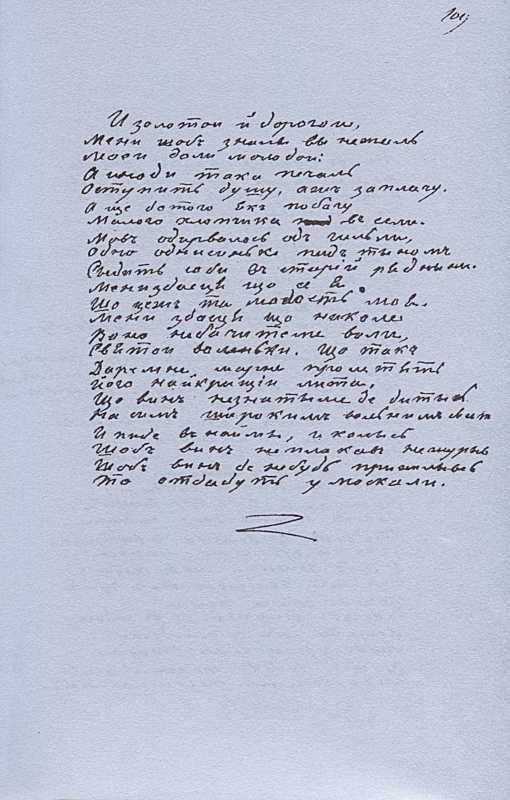 И золотои й дорогои,
Мени щобъ знали вы нежаль
Моеи доли молодои:
А иноди така печаль
Оступить душу, ажъ заплачу.
А ще дотого якъ побачу
Малого хлопчика въ сели.
Мовъ одирвалось одъ гильли,
Одно однисеньке пидъ тыномъ
Сидить соби въ старій ряднини.
Мени здаеця що се я.
Що цежъ та молодость моя.
Мени здаеця що николи
Воно небачитеме воли,
Святои воленьки. Що такъ
Даремне, марне пролетять
Його найкращіи лита,
Що винъ незнатыме де дитысь
На симъ широкимъ вольнимъ свити
И пиде внаймы, и колись
Щобъ винъ неплакавъ нежуривсь
Щобъ винъ денебудь прихиливсь
То оддадуть у москали.